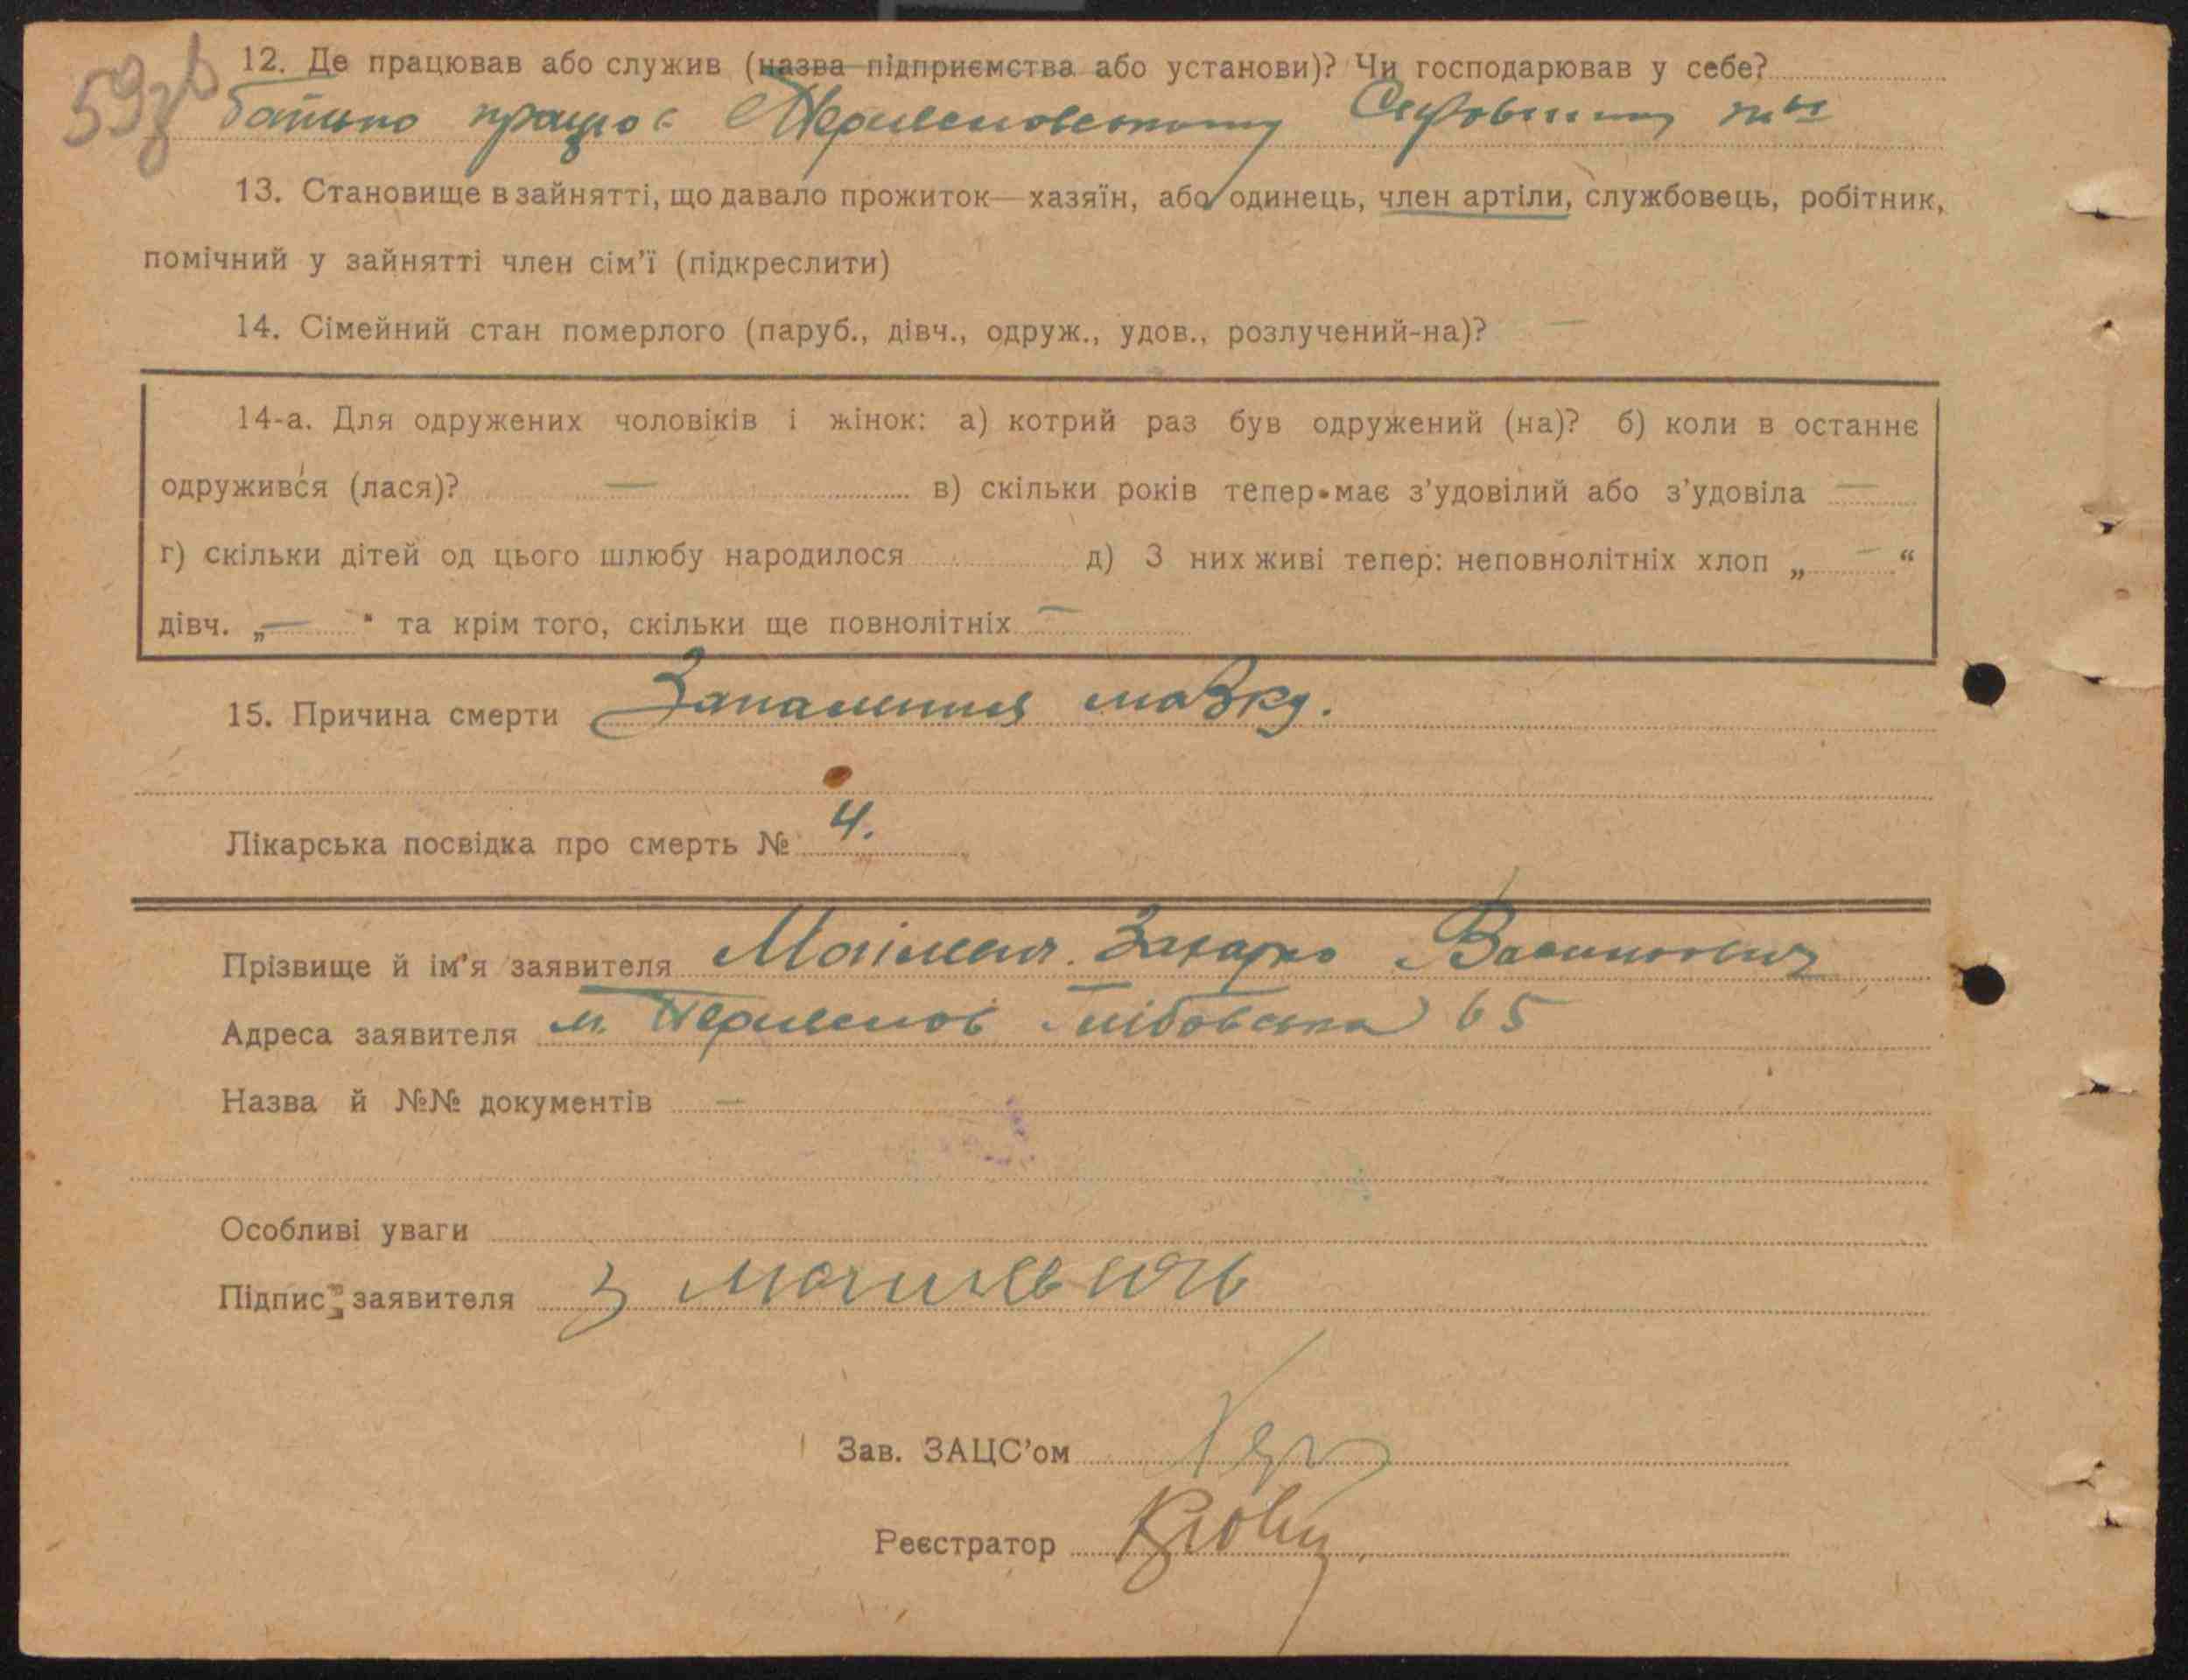 59зв
12. Де працював або служив (назва підприємства або установи)? Чи господарював у себе?
батько працює
13. Становище в зайнятті, що давало прожиток—хазяїн, або одинець, член артіли, службовець, робітник,
помічний у зайнятті член сім'ї (підкреслити)
14. Сімейний стан померлого (паруб., дівч., одруж., удов., розлучений-на)? —
14-а. Для одружених чоловіків і жінок: а) котрий раз був одружений (на)? б) коли в останнє
одружився (лася)? — в) скільки років тепер має з'удовілий або з'удовіла —
г) скільки дітей од цього шлюбу народилося д) З них живі тепер: неповнолітніх хлоп „—“
дівч. „—“ та крім того, скільки ще повнолітніх —
15. Причина смерти Запалення мозку.
Лікарська посвідка про смерть № 4.
Прізвище й ім'я заявителя Захарко
Адреса заявителя м. 65
Назва й №№ документів —
Особливі уваги
Підпис заявителя З
Зав. ЗАЦС'ом
Реєстратор